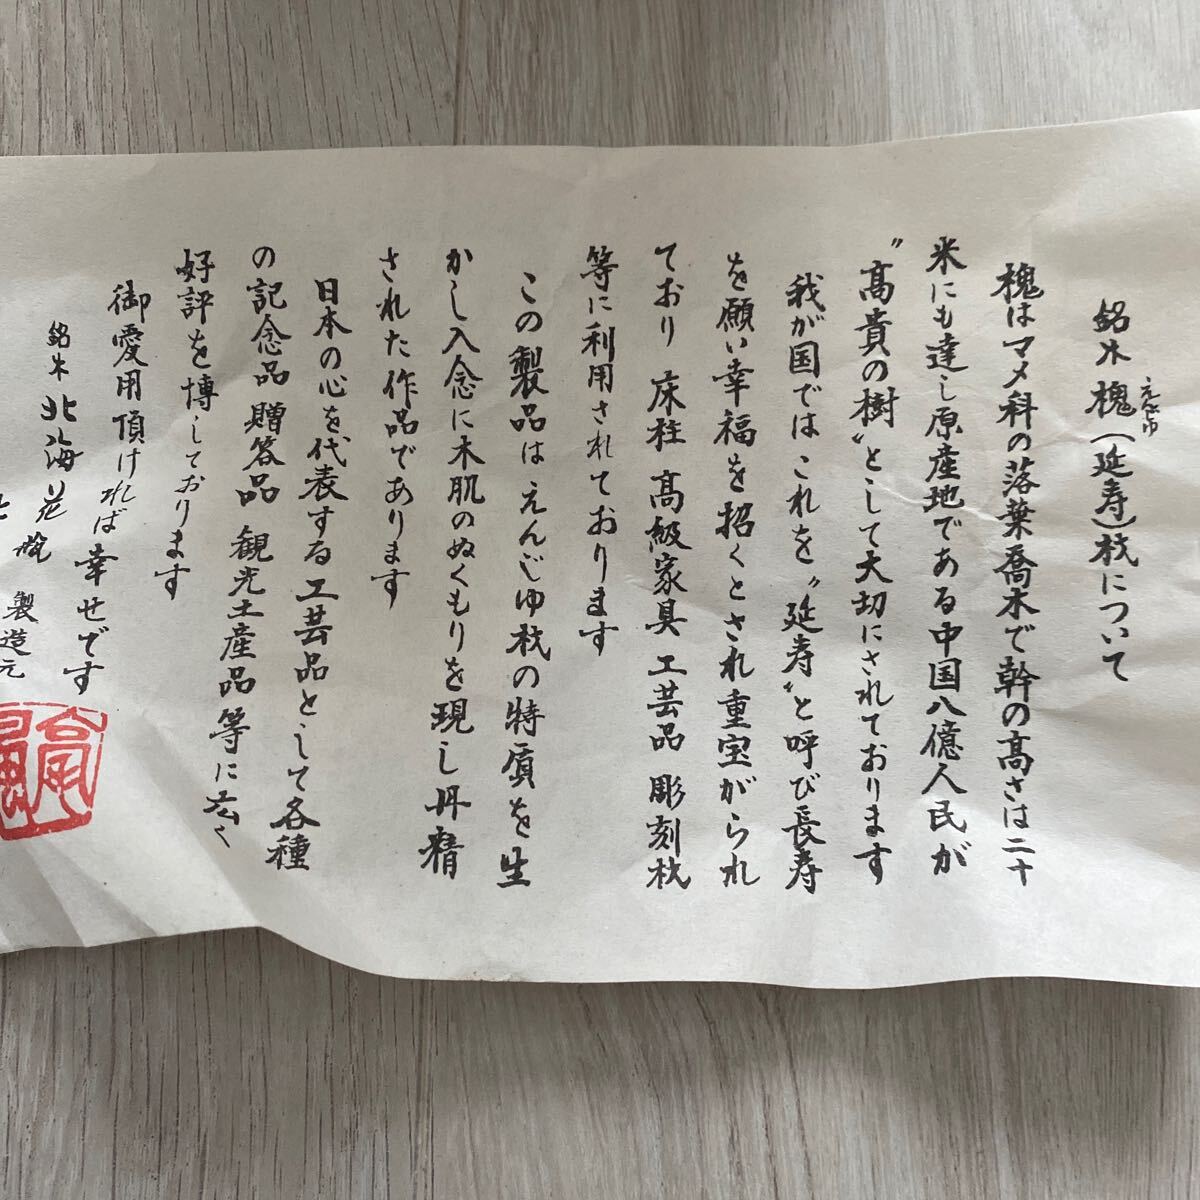 銘木 槐(延寿)材について
えんじゅ
槐はマメ科の落葉喬木で幹の高さは二十
米にも達し原産地である中国八億人民が
〝高貴の樹〟として大切にされております
我が国ではこれを〝延寿〟と呼び長寿
を願い幸福を招くとされ重宝がられ
ており 床柱 高級家具 工芸品 彫刻材
等に利用されております
この製品はえんじゆ材の特質を生
かし入念に木肌のぬくもりを現し丹精
された作品であります
日本の心を代表する工芸品として各種
の記念品 贈答品 観光土産品 等に広く
好評を博しております
御愛用頂ければ幸せです
銘木 北海花
製造元